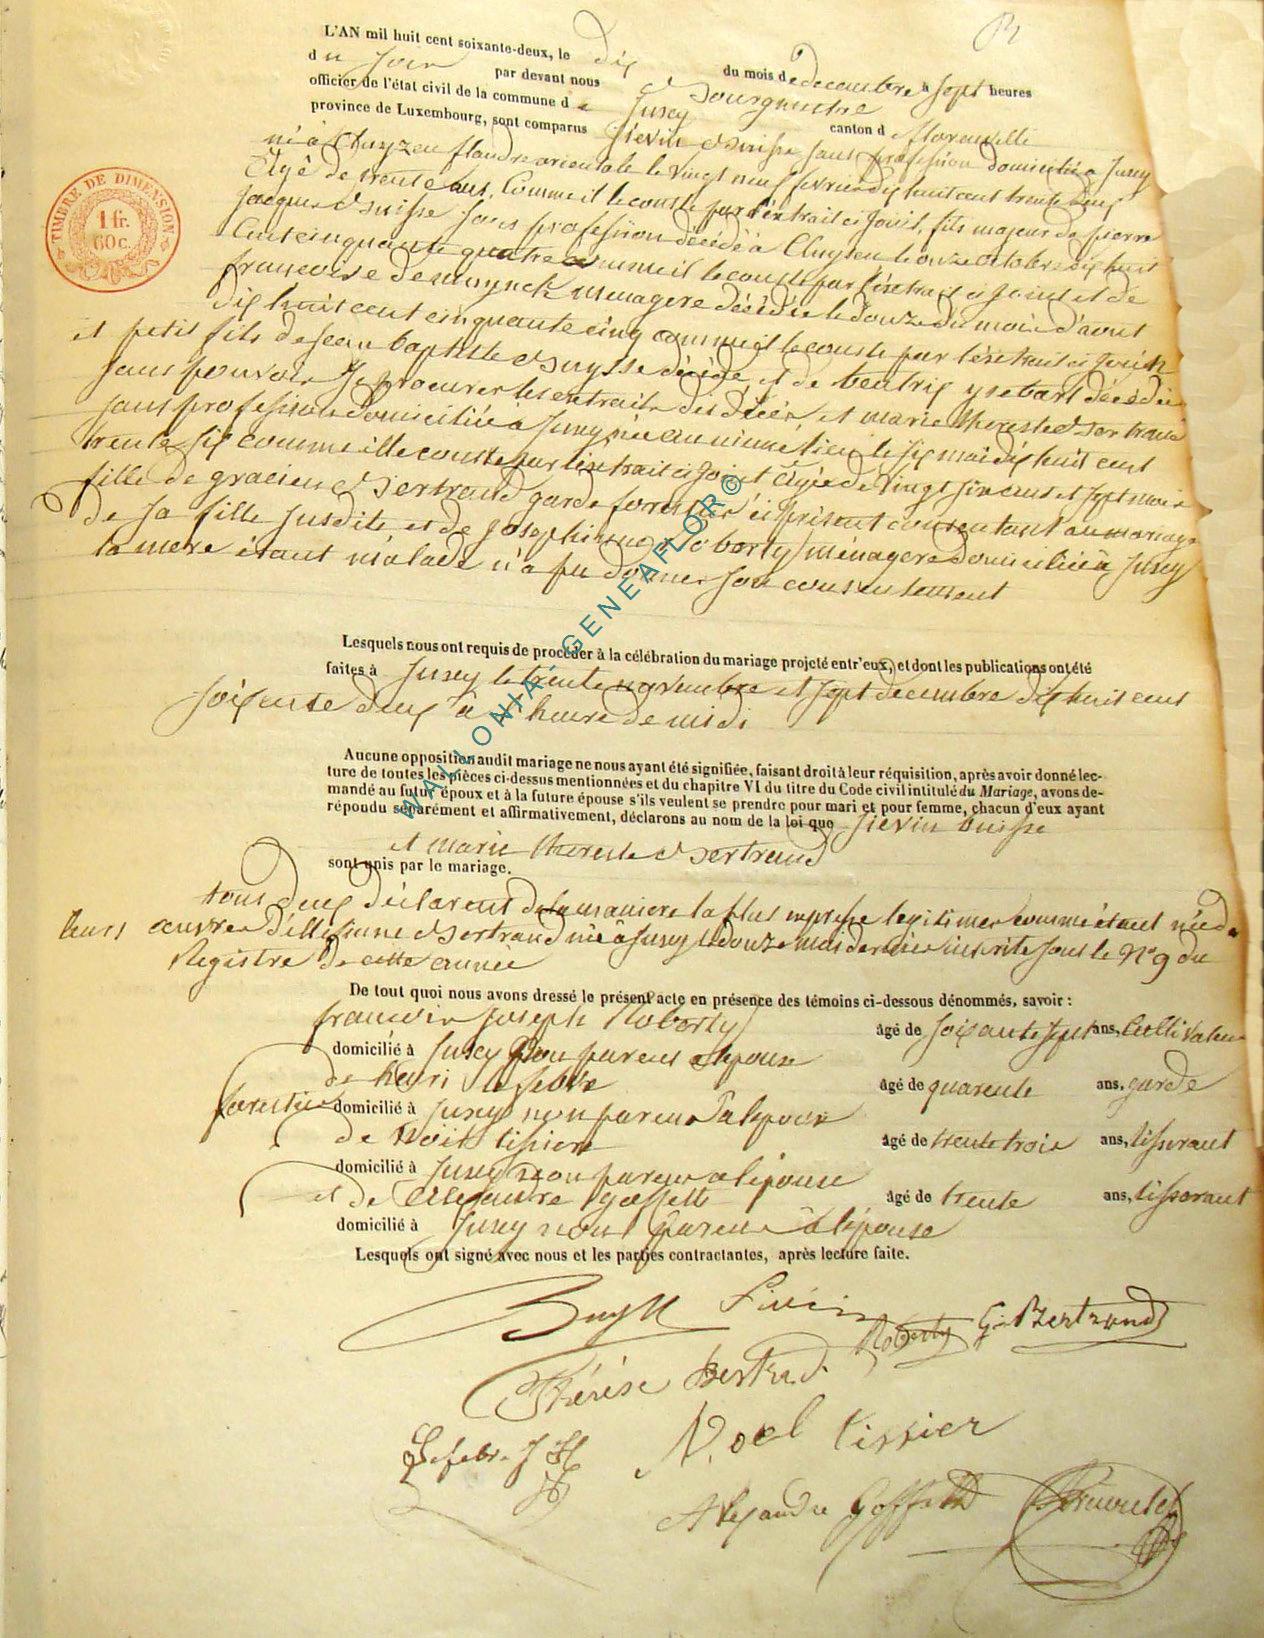 L'AN mil huit cent soixante-deux, le dix du mois de decembre à sept heures
du soir par devant nous Bourgmestre
officier de l'état civil de la commune de Jusey canton d florenville
province de Luxembourg, sont comparus
né à Cluyzen flandre orientale le vingt neuf fevrier dix huit cent trente deux
Agé de trente ans, Comme il le conste par l'extrait ci joint, fils majeur de pierre
jacques Buisse sans profession décédé à Cluysen le onze octobre dix huit
Cent cinquante quatre comme il le conste par l'extrait ci joint et de
françoise demuynck menagere décédée le douze du mois d'aout
dix huit cent cinquante cinq comme il le conste par l'extrait ci joint
et petit fils de jean baptiste Buysse décédé et de beatrix ysebart décédée
sans pouvoir se procurer les extraits des décès, et marie thereste Bertrand
sans profession domiciliée à Jusey née au même lieu le six mai dix huit cent
trente six comme ille conste par l'extrait ci joint Agée de vingt six ans et sept mois
fille de gracien Bertrand garde forestier ici présent consentant au mariage
de sa fille susdite et de josephinne Roborty ménagere domiciliée à Jusey
la mere étant malade n'a pu donner son consentement
Lesquels nous ont requis de procéder à la célébration du mariage projeté entr'eux, et dont les publications ont été
faites à Jusey le trente novembre et sept decembre dix huit cent
soixente deux à heure de midi
Aucune opposition audit mariage ne nous ayant été signifiée, faisant droit à leur réquisition, après avoir donné lec-
ture de toutes les pièces ci-dessus mentionnées et du chapitre VI du titre du Code civil intitulé du Mariage, avons de-
mandé au futur époux et à la future épouse s'ils veulent se prendre pour mari et pour femme, chacun d'eux ayant
répondu séparément et affirmativement, déclarons au nom de la loi que sievin buisse
et marie thereste Bertrand
sont unis par le mariage.
tous deux déclarent de la maniere la plus expresse legitimer comme étant née de
leurs œuvres Bertrand née à Jusey le douze mai dernier inscrite sous le N° 9 du
Registre de cette année
De tout quoi nous avons dressé le présent acte en présence des témoins ci-dessous dénommés, savoir :
francois joseph Roborty âgé de soixante sept ans, Cultivateur
domicilié à Jusey non parent a lépouse
de henri lefebvre âgé de quarente ans, garde
forestier domicilié à Jusey non parent a lepouse
de Noël tissier âgé de trente trois ans, tisserant
domicilié à Jusey non parent a lépouse
et de Alexandre goffette âgé de trente ans, tisserant
domicilié à Jusey non parent à lépouse
Lesquels ont signé avec nous et les parties contractantes, après lecture faite.
Buysse Livin Roborty G. Bertrand
Thérèse Bertrand
Lefebvre J H Noel tissier
Alexandre Goffette
TIMBRE DE DIMENSION
1 fr.
60 c.
WALLONIA GENEAFLOR ©